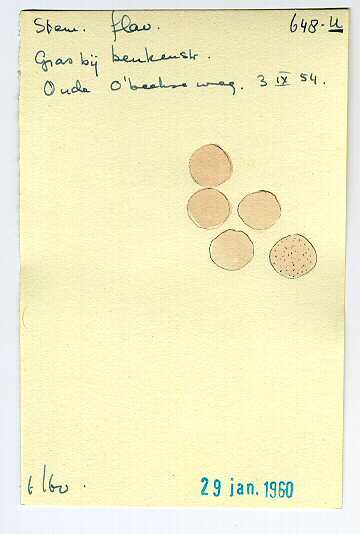 Stem. flav. 648-U
Gras bij beukenstr.
Oude O'beekse weg. 3 IX 54.
6/60.
29 jan. 1960